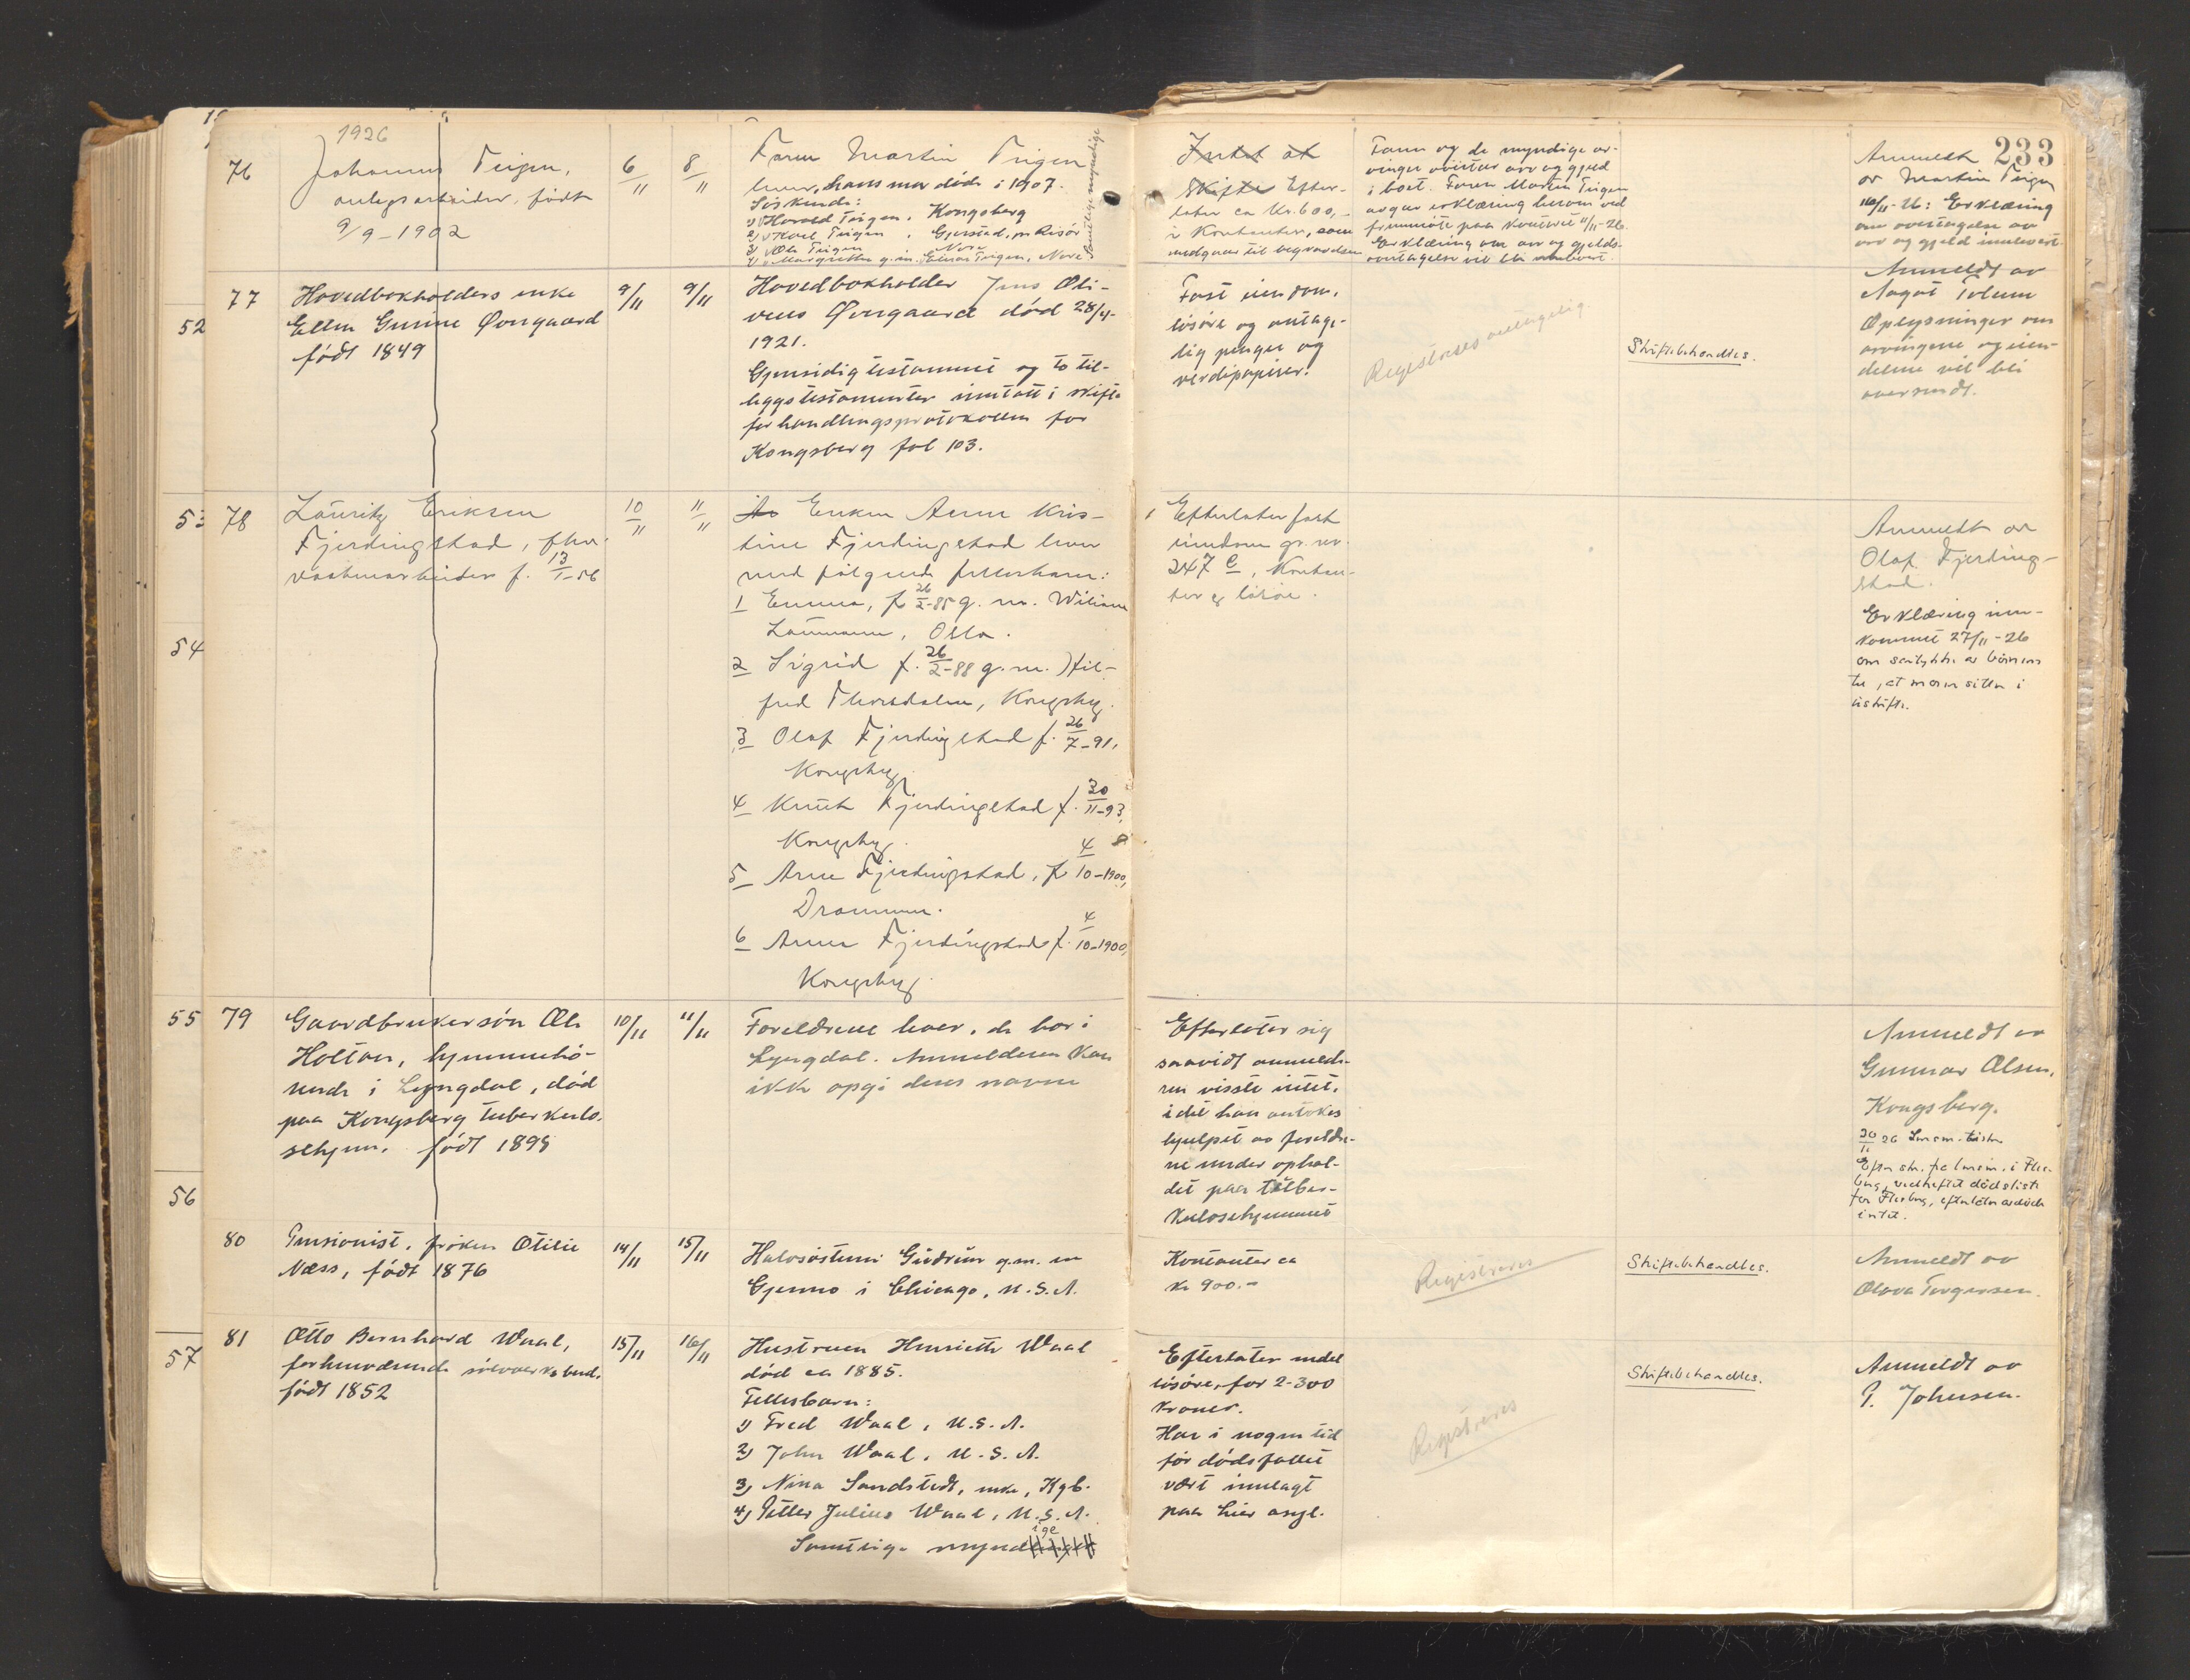 233
1926
76
Johannes Teigen,
anlegsarbeider, født
9/9-1902
6/11
8/11
Faren Martin Teigen
lever, hans mor døde i 1907.
Søskende:
1) Harald Teigen, Kongsberg
2) Karl Teigen, Gjerstad, pr Risör
3) Ola Teigen, Nore
4) Margrethe g.m. Einar Teigen, Nore
Samtlige myndige
Intet at
skifte Efter-
later ca Kr. 600,-
i Kontanter, som
medgaar til begravelsen
Faren og de myndige ar-
vinger overtar arv og gjeld
i boet. Faren Martin Teigen
avgav erklæring herom ved
fremmöte paa kontoret 11/11-26.
Erklæring om arv og gjelds-
overtagelse vil bli innlevert.
Anmeldt
av Martin Teigen
16/11-26: Erklæring
om overtagelse av
arv og gjeld innlevert.
52
77
Hovedbokholders enke
Ellen Gurine Øvrgaard
født 1849
9/11
9/11
Hovedbokholder Jens Oli-
veus Øvrgaard död 28/4-
1921.
Gjensidig testament og to til-
leggstestamenter inntatt i skifte
forhandlingsprotokollen for
Kongsberg fol 103.
Fast eiendom,
lösöre og antage-
lig penger og
verdipapirer.
Registreres antagelig
Skiftebehandles.
Anmeldt av
Aagot Tolum
Oplysninger om
arvingene og eien-
delene vil bli
oversendt.
53
78
Lauritz Eriksen
Fjerdingstad, fhv.
vaabenarbeider f. 13/1-56
10/11
11/11
Enken Anne Kris-
tine Fjerdingstad lever
med følgende fellesbarn:
1 Emma, f. 26/2-85 g. m. Wiliam
Laumann, Oslo.
2 Sigrid f. 26/2-88 g.m. Hil-
fred Thorsdalen, Kongsbg.
3 Olaf Fjerdingstad f. 26/7-91,
Kongsbg.
4 Knut Fjerdingstad f. 30/11-93,
Kongsbg.
5 Arne Fjerdingstad, f. 4/10-1900,
Drammen.
6 Anna Fjerdingstad f. 4/10-1900,
Kongsbg.
Efterlater fast
eiendom gr. nr.
247 c, Kontan-
ter og lösöre.
Anmeldt av
Olaf Fjerding-
stad.
Erklæring inn-
kommet 27/11-26
om samtykke av barnene
til, at moren sitter i
uskifte.
54
55
79
Gaardbrukersön Ole
Holtan, hjemmehö-
rende i Lyngdal, död
paa Kongsberg tuberkulo-
sehjem. født 1898
10/11
11/11
Foreldrene lever, de bor i
Lyngdal. Anmelderen kan
ikke opgi deres navne
Efterlater sig
saavidt anmelde-
ren visste intet,
idet han antokes
hjulpet av foreldre-
ne under ophol-
det paa tuber-
kulosehjemmet
Anmeldt av
Gunnar Olsen,
Kongsberg.
30/11 26
intet.
56
80
Pensionist, fröken Otilie
Næss, født 1876
14/11
15/11
Halvsösteren Gudrun g.m. en
Gjermo i Chicago, U.S.A.
Kontanter ca
Kr 900.-
Registreres
Skiftebehandles.
Anmeldt av
Olava Torgersen.
57
81
Otto Bernhard Waal,
forhenværende sölvverksbud,
født 1852
15/11
16/11
Hustruen Henriette Waal
död ca 1885.
Fellesbarn:
1) Fred Waal, U.S.A.
2) John Waal, U.S.A.
3) Nina Sandstedt, enke, Kgb.
4) Petter Julius Waal, U.S.A.
Samtlige myndige
Efterlater endel
lösöre, for 2-300
Kroner.
Har i nogen tid
för dödsfallet
vært innlagt
paa hier asyl.
Registreres
Skiftebehandles.
Anmeldt av
P. Johnsen.